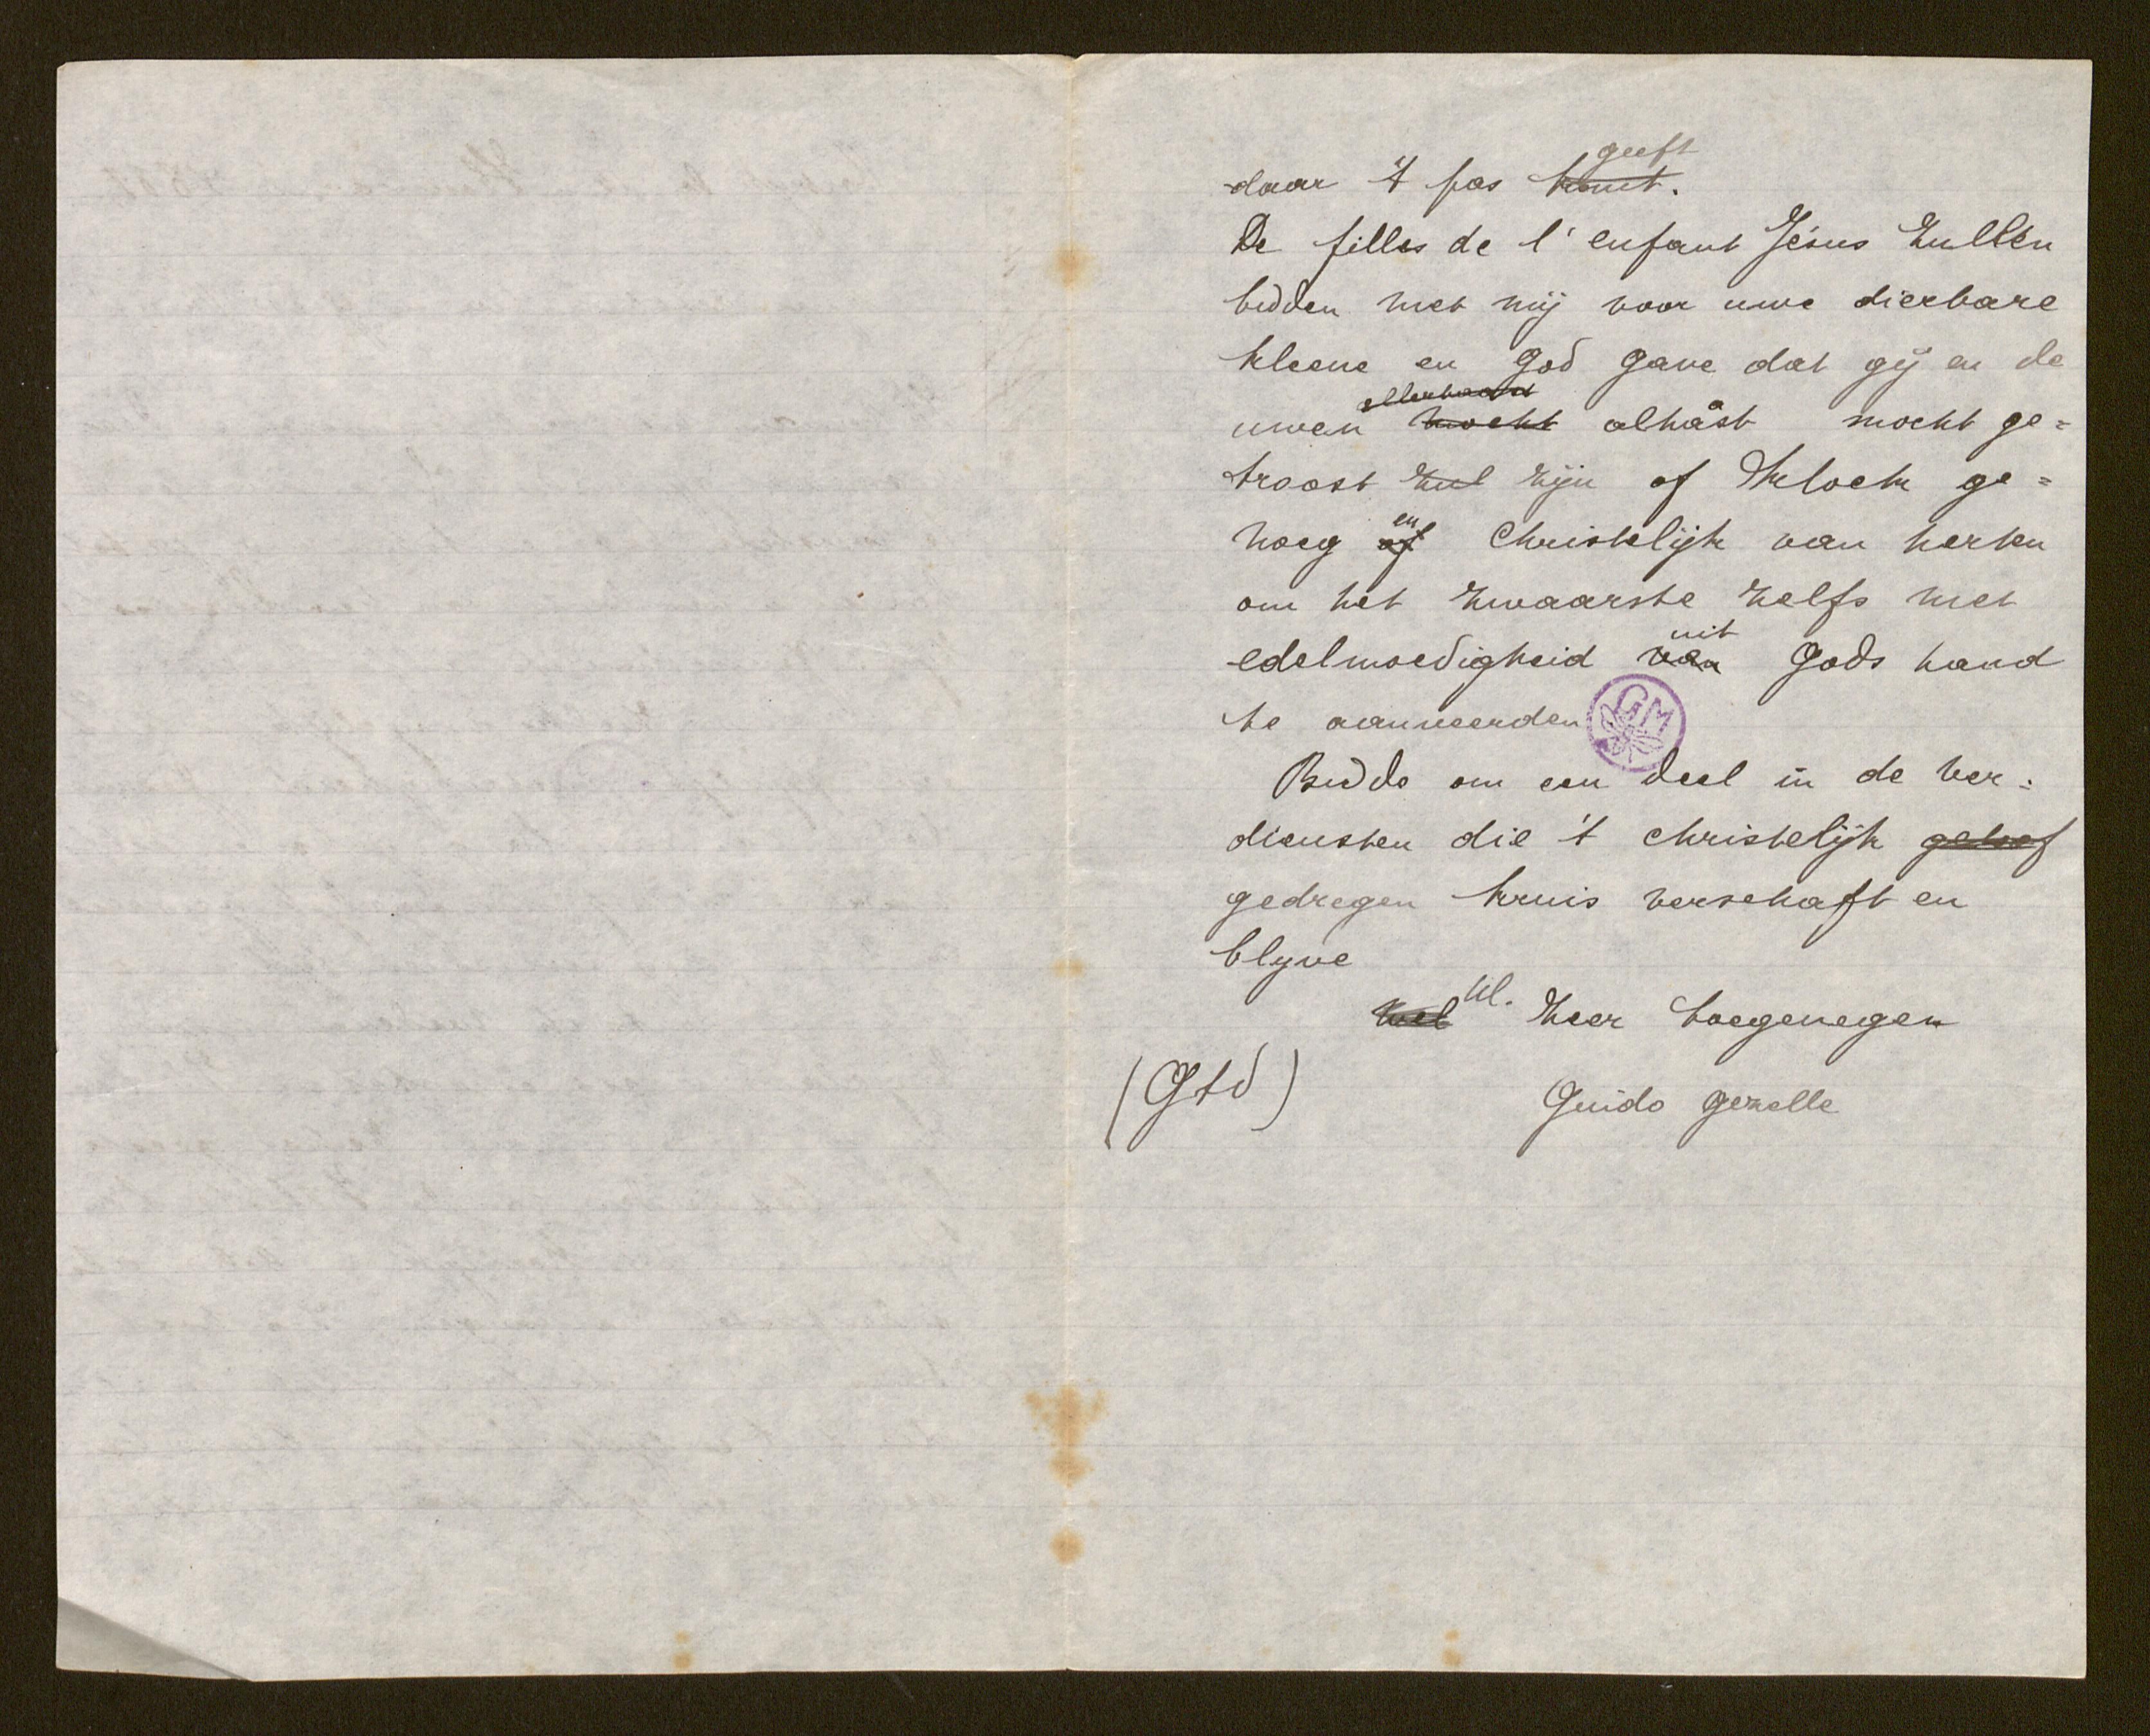 geeft
daar 't pas komt.
De filles de l'enfant Jésus zullen
bidden met mij voor uwe dierbare
kleene en God gave dat gij en de
allerhaast
uwen mocht alhast mocht ge=
troost zul zijn of kloek ge=
en
noeg of Christelijk van herten
om het zwaarste zelfs met
uit
edelmoedigheid van Gods hand
te aanveerden
GM
Bidde om een deel in de ver=
diensten die 't christelijk geloof
gedregen kruis verschaft en
blyve
Ul.
Wel zeer toegenegen
(Gtd) Guido Gezelle